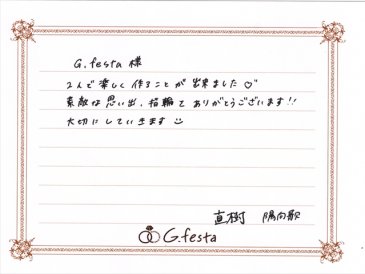 G.festa 様
2人で楽しく作ることが出来ました♡
素敵な思い出、指輪を ありがとうございます!!
大切にしていきます☺
直樹 陽向歌
G.festa